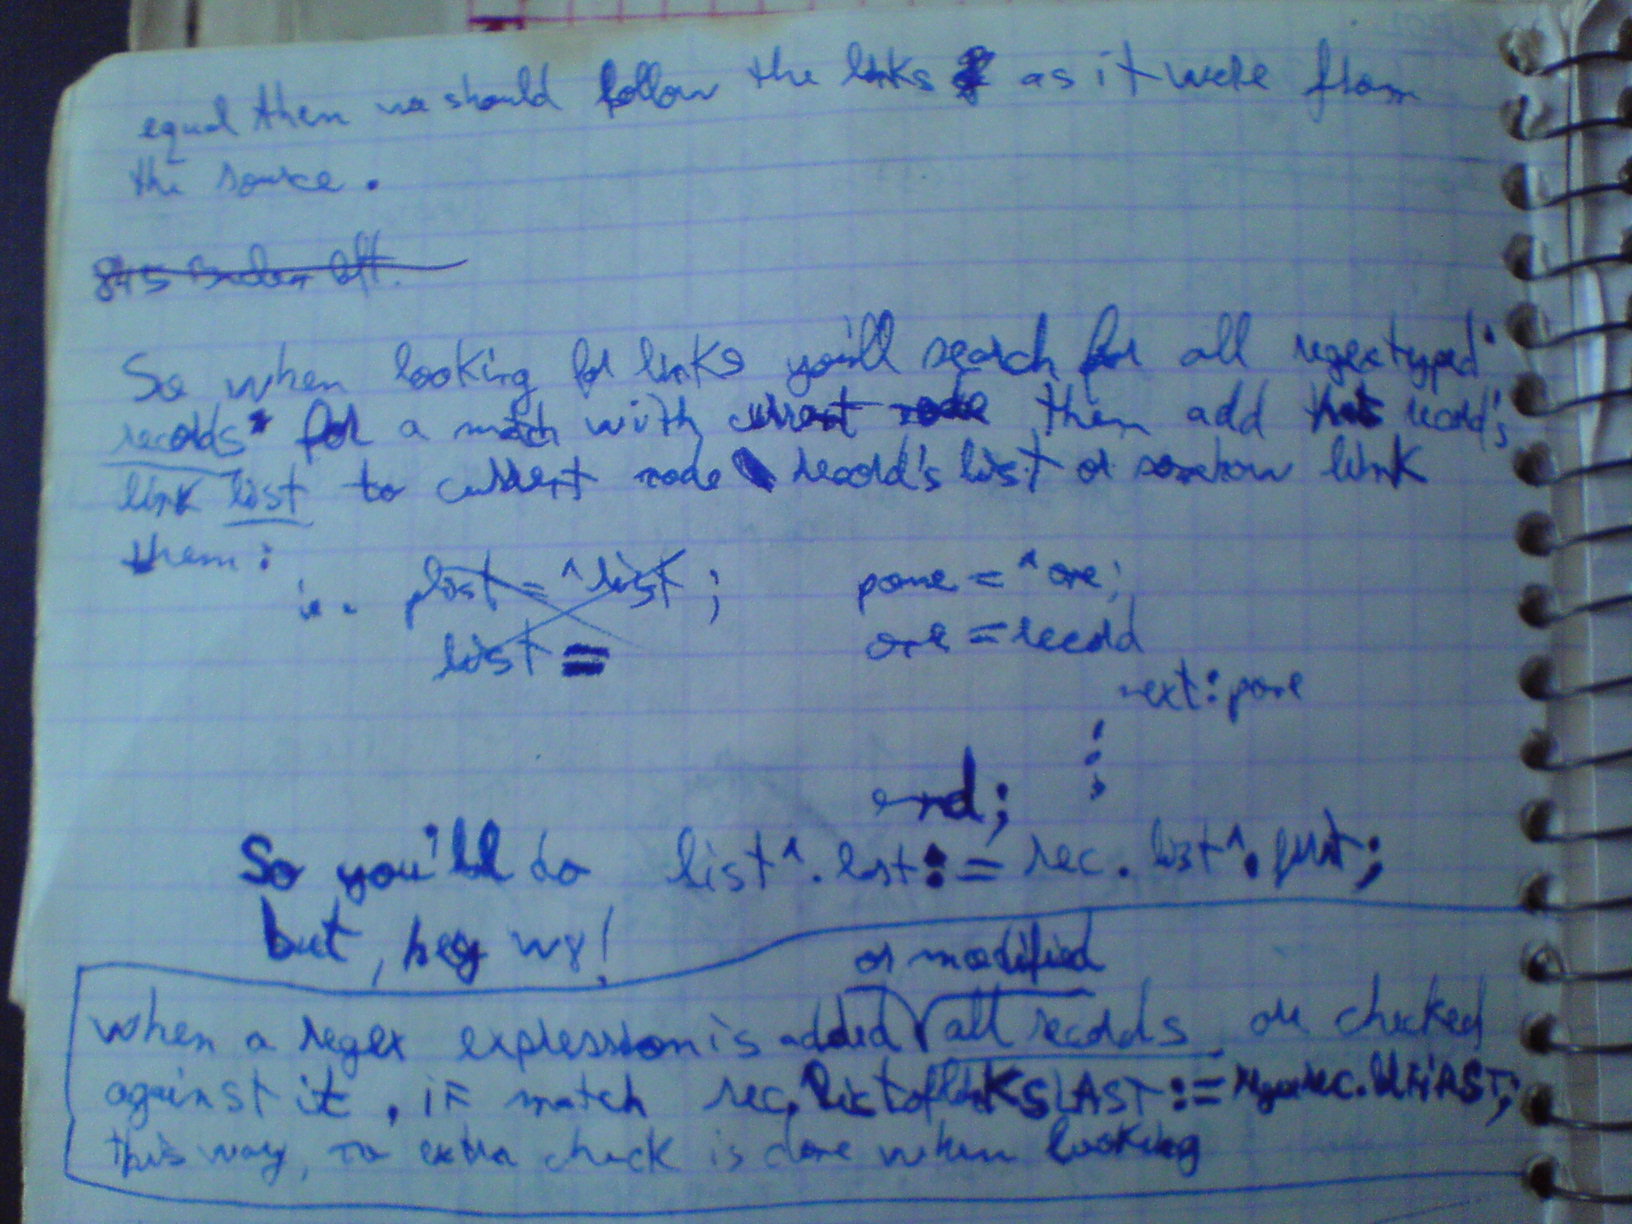 equal then we should follow the links as it were from
the source.
So when looking for links you'll search for all regex typed
records* for a match with current node then add that record's
link list to current node record's list or somehow link
them:
i.e. plist = ^list;
list =
pone = ^one;
one = record
next: pone
end;
So you'll do list^.last := rec.list^.first;
but, hey w8!
or modified
When a regex expression is added √ all records are checked
against it, iF match rec.ListofLinKSLAST:=regexrec.
this way, no extra check is done when looking